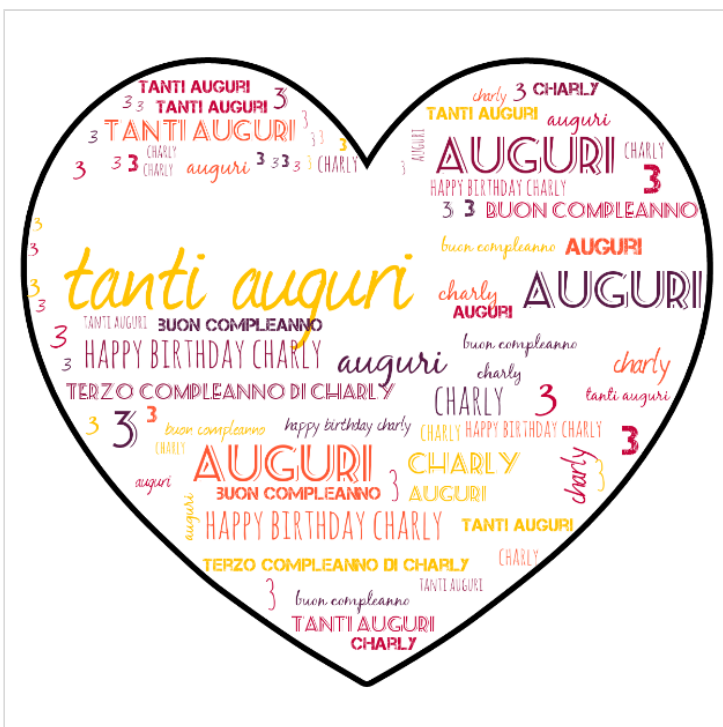 TANTI AUGURI
3 3 3 TANTI AUGURI 3
3 TANTI AUGURI 3
3 3 3 CHARLY
CHARLY auguri 3 3 3 3 3 3 CHARLY
charly 3 CHARLY
TANTI AUGURI auguri
AUGURI AUGURI CHARLY
3 HAPPY BIRTHDAY CHARLY 3
3 3 BUON COMPLEANNO
3
3 buon compleanno AUGURI
3 tanti auguri charly AUGURI
3 AUGURI
TANTI AUGURI BUON COMPLEANNO
3 HAPPY BIRTHDAY CHARLY auguri buon compleanno
3 charly charly
TERZO COMPLEANNO DI CHARLY CHARLY 3 tanti auguri
3 3 3 buon compleanno happy birthday charly CHARLY HAPPY BIRTHDAY CHARLY 3
CHARLY
AUGURI CHARLY charly 3
auguri BUON COMPLEANNO 3 AUGURI
auguri HAPPY BIRTHDAY CHARLY TANTI AUGURI
TERZO COMPLEANNO DI CHARLY CHARLY
3 TANTI AUGURI
buon compleanno
TANTI AUGURI
CHARLY